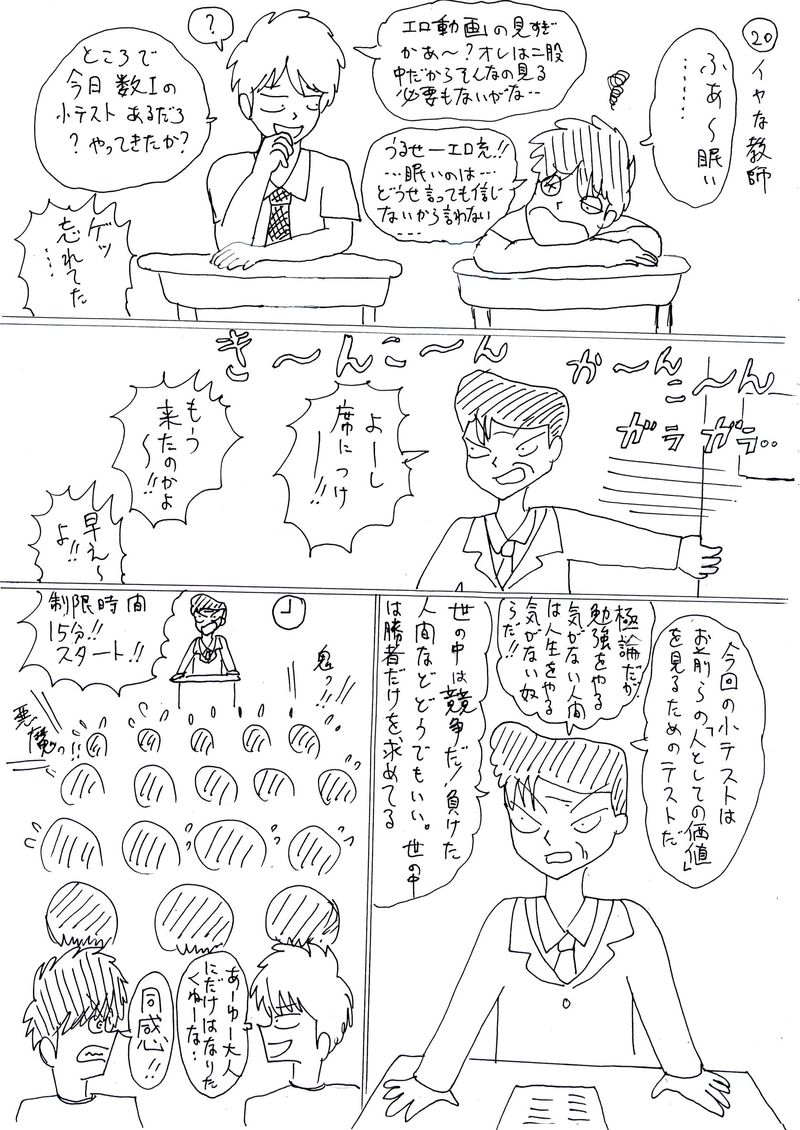 20
イヤな教師
ふあ〜眠い
……
エロ動画の見すぎ
かあ〜？オレは二股
中だからそんなの見る
必要もないがな…
うるせーエロ充!!
…眠いのは…
どうせ言っても信じ
ないから言わない
…
?
ところで
今日数Iの
小テストあるだろ
？やってきたか？
ゲッ
忘れてた
…
き〜んこ〜ん
か〜んこ〜ん
ガラガラ..
よーし
席につけ
ー!!
もう
来たのかよ
〜!!
早え〜
よ!!
今回の小テストは
お前らの「人としての価値」
を見るためのテストだ
極論だが
勉強をやる
気がない人間
は人生をやる
気がない奴
らだ!!
世の中は競争だ!負けた
人間などどうでもいい。世の中
は勝者だけを求めてる
制限時間
15分!!
スタート!!
鬼っ!!
悪魔っ!!
あーゆー大人
にだけはなりた
くねーな…
同感!!